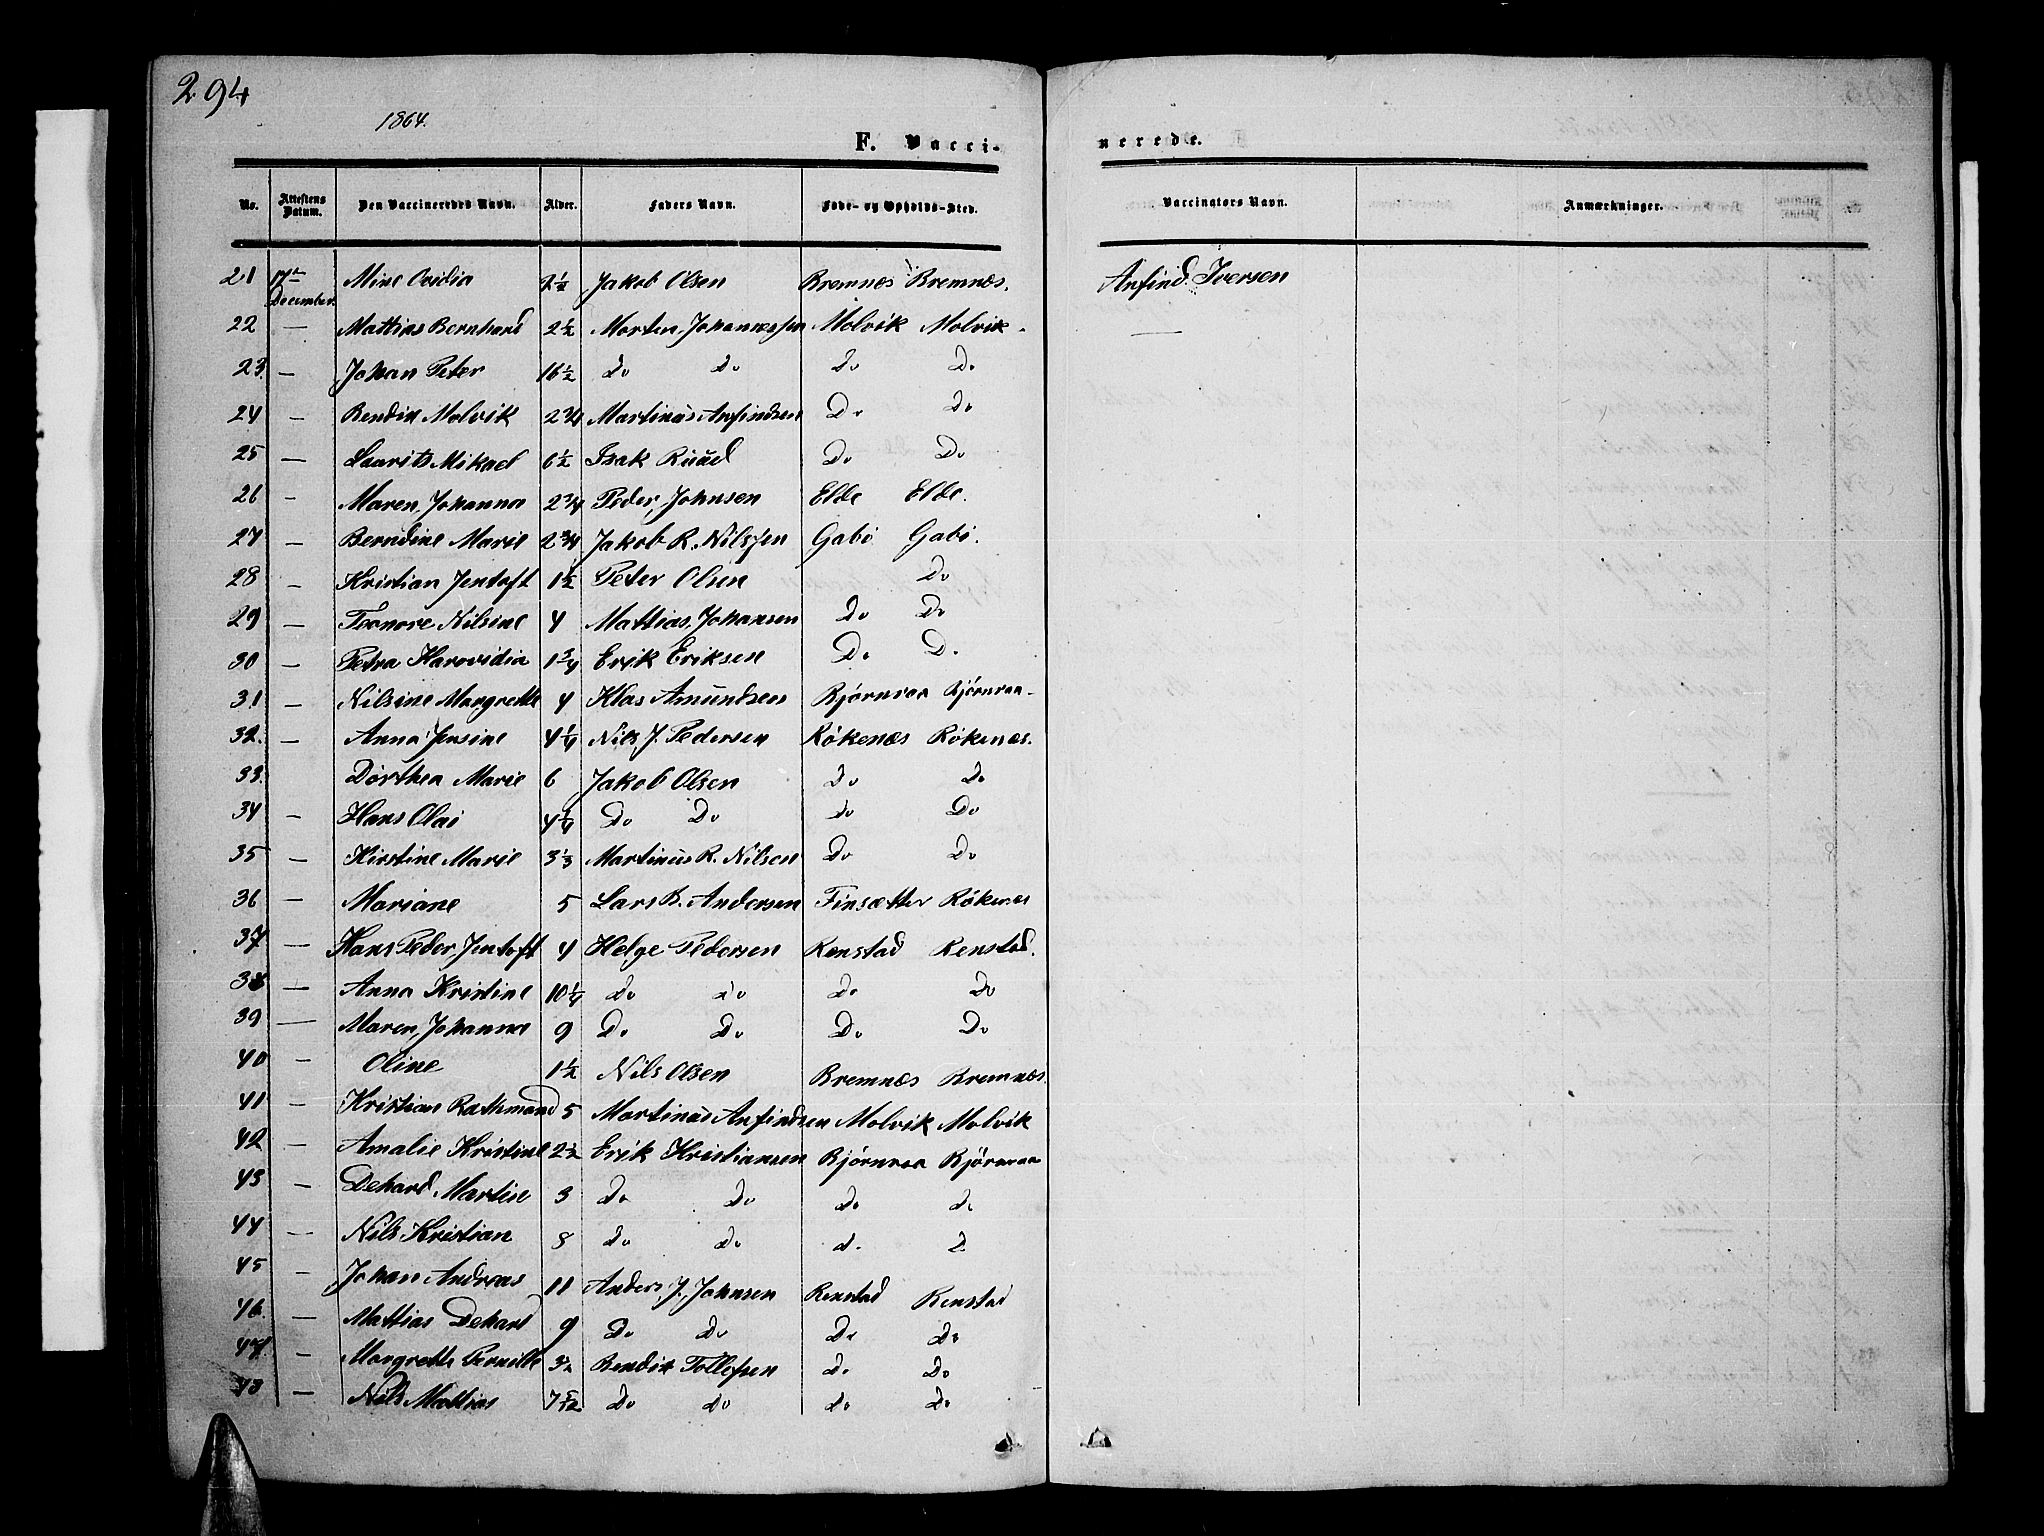 294
1864.
F. Vacci-
nerede.
No. Attestens Datum. Den Vaccineredes Navn. Alder. Faders Navn. Føde- og Opholds-Sted. Vaccinators Navn. Anmærkninger.
21 17de December. Mine Ovidia 2 1/2 Jakob Olsen Bremnæs Bremnæs. Anfind Iversen
22 — Mattias Bernhard 2 1/2 Morten Johannessen Molvik Molvik. —
23. — Johan Peter 16 1/2 Do Do Do Do
24 — Bendix Molvik 2 3/4 Martinus Anfindsen Do Do
25 — Laurits Mikael 6 1/2 Isak Ruud Do Do
26 — Maren Johanna 2 3/4 Peder Johnsen Elde Elde.
27 — Berndine Marie 2 3/4 Jakob R. Nilssen Gabø Gabø.
28 — Kristian Jentoft 1 1/2 Peter Olsen Do
29 — Leonore Nilsine 4 Mattias Johansen Do Do
30 — Petra Harovidia 1 3/4 Erik Eriksen Do Do
31 — Nilsine Margrethe 4 Klas Amundsen Bjørnraa Bjørnraa
32. — Anna Jensine 4 1/4 Nils J. Pedersen Røkenæs Røkenæs.
33. — Dorthea Marie 6 Jakob Olsen Do Do
34 — Hans Olai 4 1/4 Do Do Do Do
35 — Kirstine Marie 3 1/3 Martinus R. Nilsen Do Do
36 — Mariane 5 Lars B. Andersen Finsætter Røkenæs
37 — Hans Peder Jentoft 4 Helge Pedersen Renstad Renstad.
38 — Anna Kristine 10 1/4 Do Do Do Do
39 — Maren Johanna 9 Do Do Do Do
40 — Oline 1 1/2 Nils Olsen Bremnæs Bremnæs.
41 — Kristian Rathmand 5 Martinus Anfindsen Molvik Molvik
42 — Amalie Kristine 2 1/2 Erik Kristiansen Bjørnraa Bjørnraa
43 — Dehard Martin 3 Do Do Do Do
44 — Nils Kristian 8 Do Do Do Do
45 — Johan Andreas 11 Anders J. Johnsen Renstad Renstad
46. — Mattias Dehard 9 Do Do Do Do
47 — Margrethe Pernille 3 1/2 Bendix Tollefsen Do Do
48 — Nils Mattias 7 5/12 Do Do Do Do